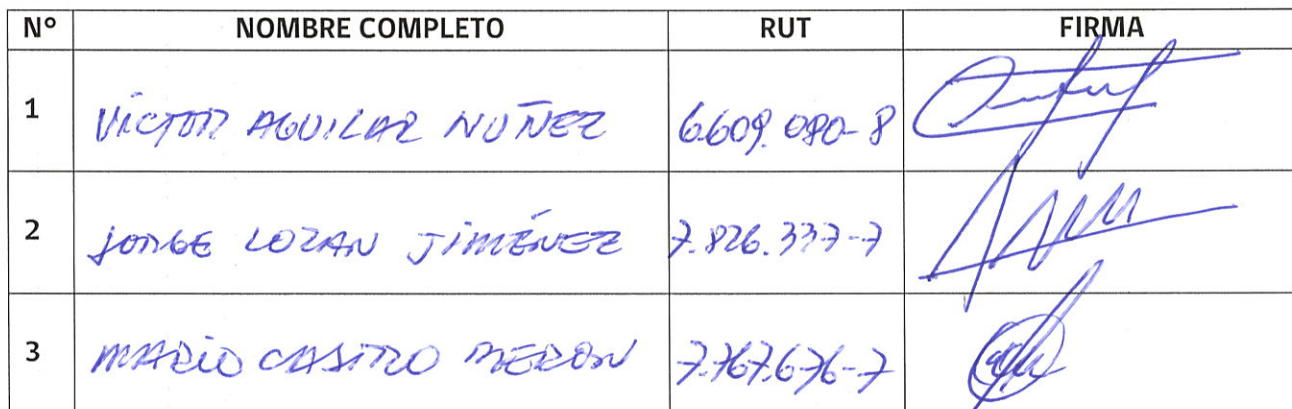 N° NOMBRE COMPLETO RUT FIRMA
1 VÍCTOR AGUILAR NUÑEZ 6.609.080-8
2 JORGE LOZAN JIMÉNEZ 7.826.337-7
3 MARIO CASTRO MERON 7.767.676-7